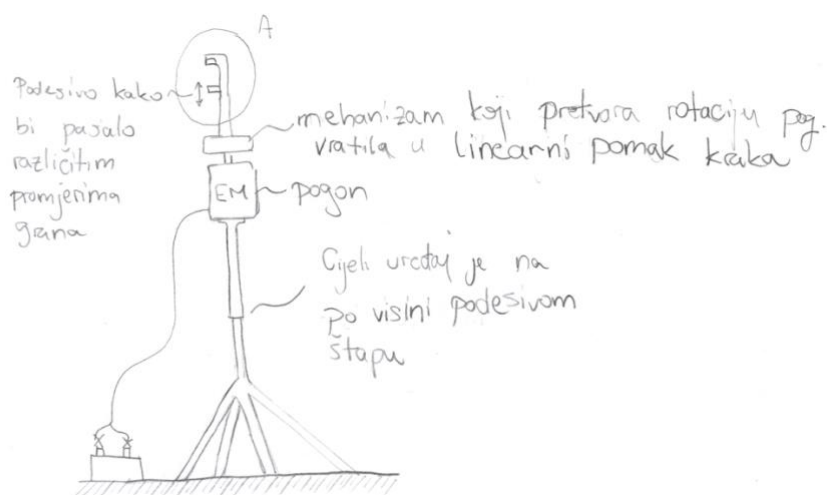 A
Podesivo kako
bi pasalo
različitim
promjerima
grana
mehanizam koji pretvara rotaciju pog.
vratila u linearni pomak kraka
EM
pogon
Cijeli uređaj je na
po visini podesivom
štapu